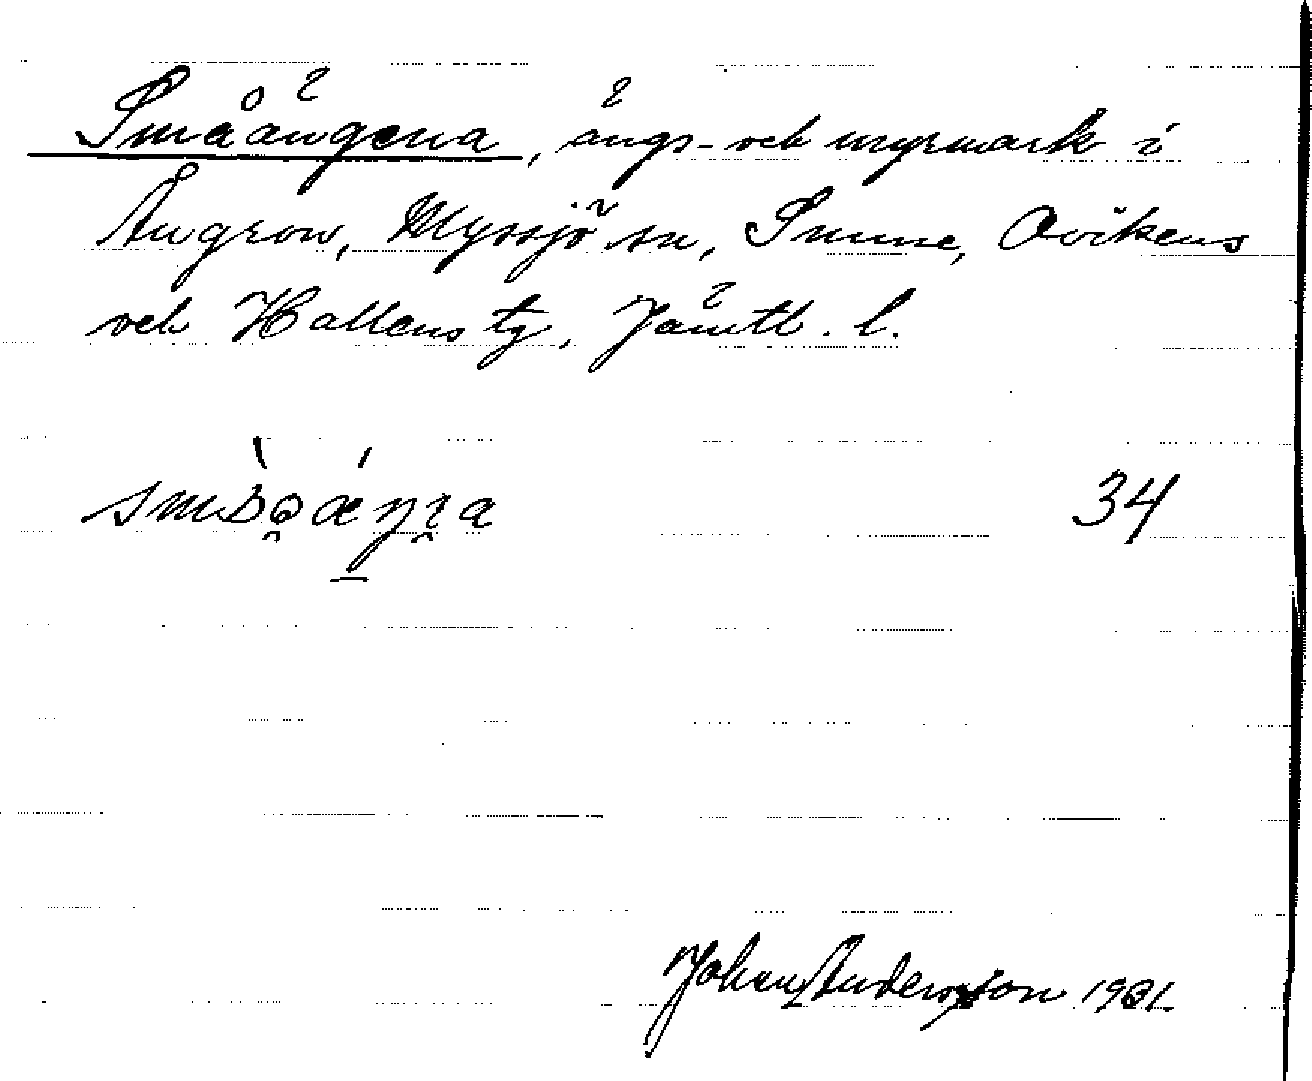 Småängena, ängs- och myrmark i
Ångron, Myssjö sn, Sunne, Ovikens
och Hallens tg, Jämtl. l.
34
Johan Andersson 1931.